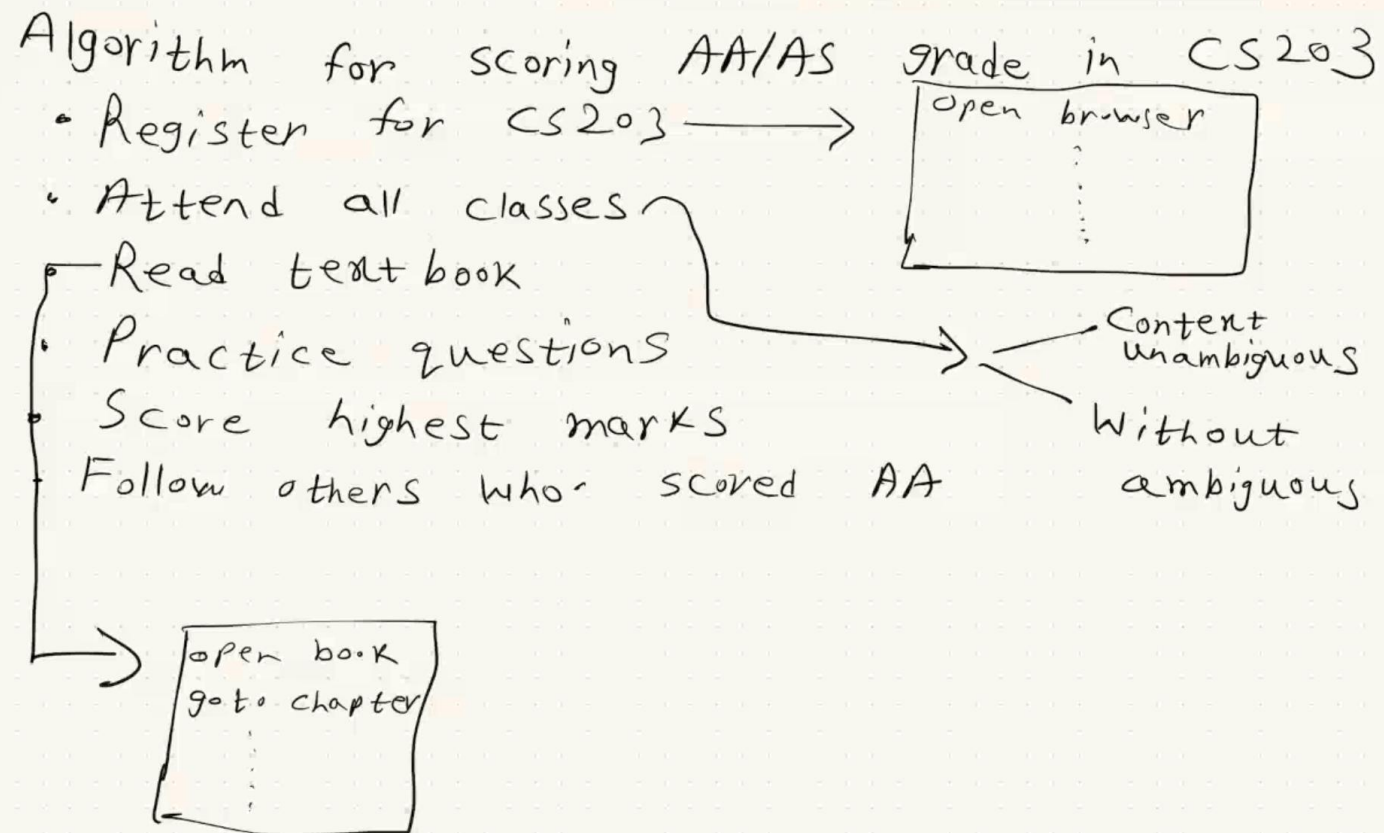 Algorithm for scoring AA/AS grade in CS203
• Register for CS203
open browser
• Attend all classes
Read textbook
• Practice questions
• Score highest marks
Follow others who scored AA
Content
unambiguous
Without
ambiguous
open book
goto chapter